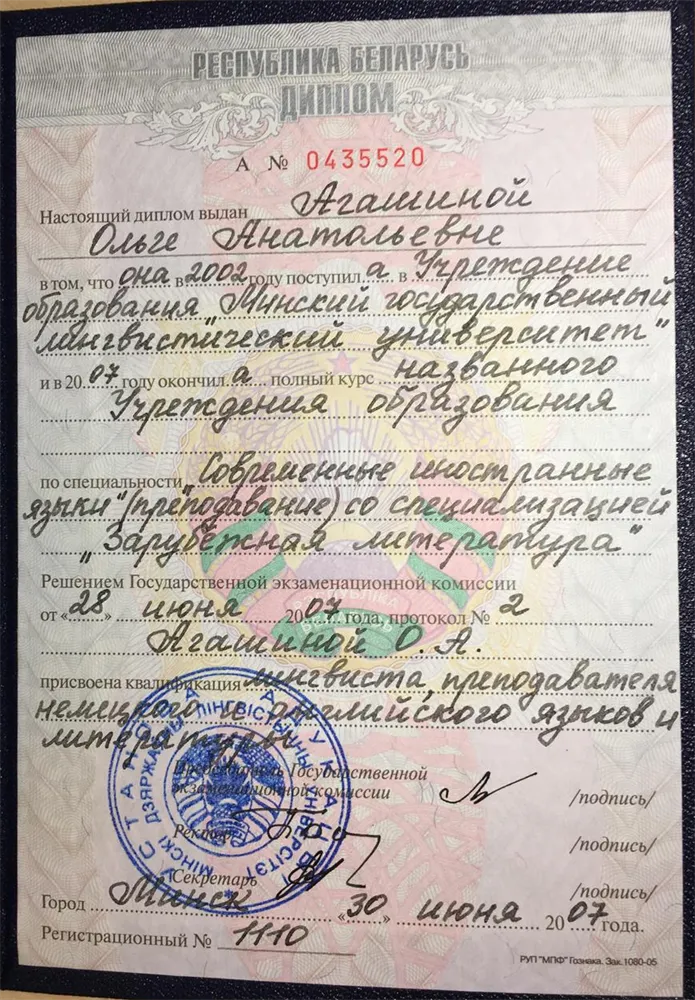 РЕСПУБЛИКА БЕЛАРУСЬ
ДИПЛОМ
А № 0435520
Настоящий диплом выдан Агашиной
Ольге Анатольевне
в том, что она в 2002 году поступила в Учреждение
образования „Минский государственный
лингвистический университет"
и в 2007 году окончила полный курс названного
Учреждения образования
по специальности „Современные иностранные
языки" (преподавание) со специализацией
„Зарубежная литература"
Решением Государственной экзаменационной комиссии
от «28» июня 2007 года, протокол № 2
Агашиной О. А.
присвоена квалификация лингвиста, преподавателя
немецкого и английского языков и
литературы
Председатель Государственной
экзаменационной комиссии /подпись/
Ректор /подпись/
Секретарь /подпись/
МІНСКІ ДЗЯРЖАЎНЫ ЛІНГВІСТЫЧНЫ УНІВЕРСІТЭТ
Город Минск «30» июня 2007 года.
Регистрационный № 1110
РУП "МПФ" Гознака. Зак. 1080-05